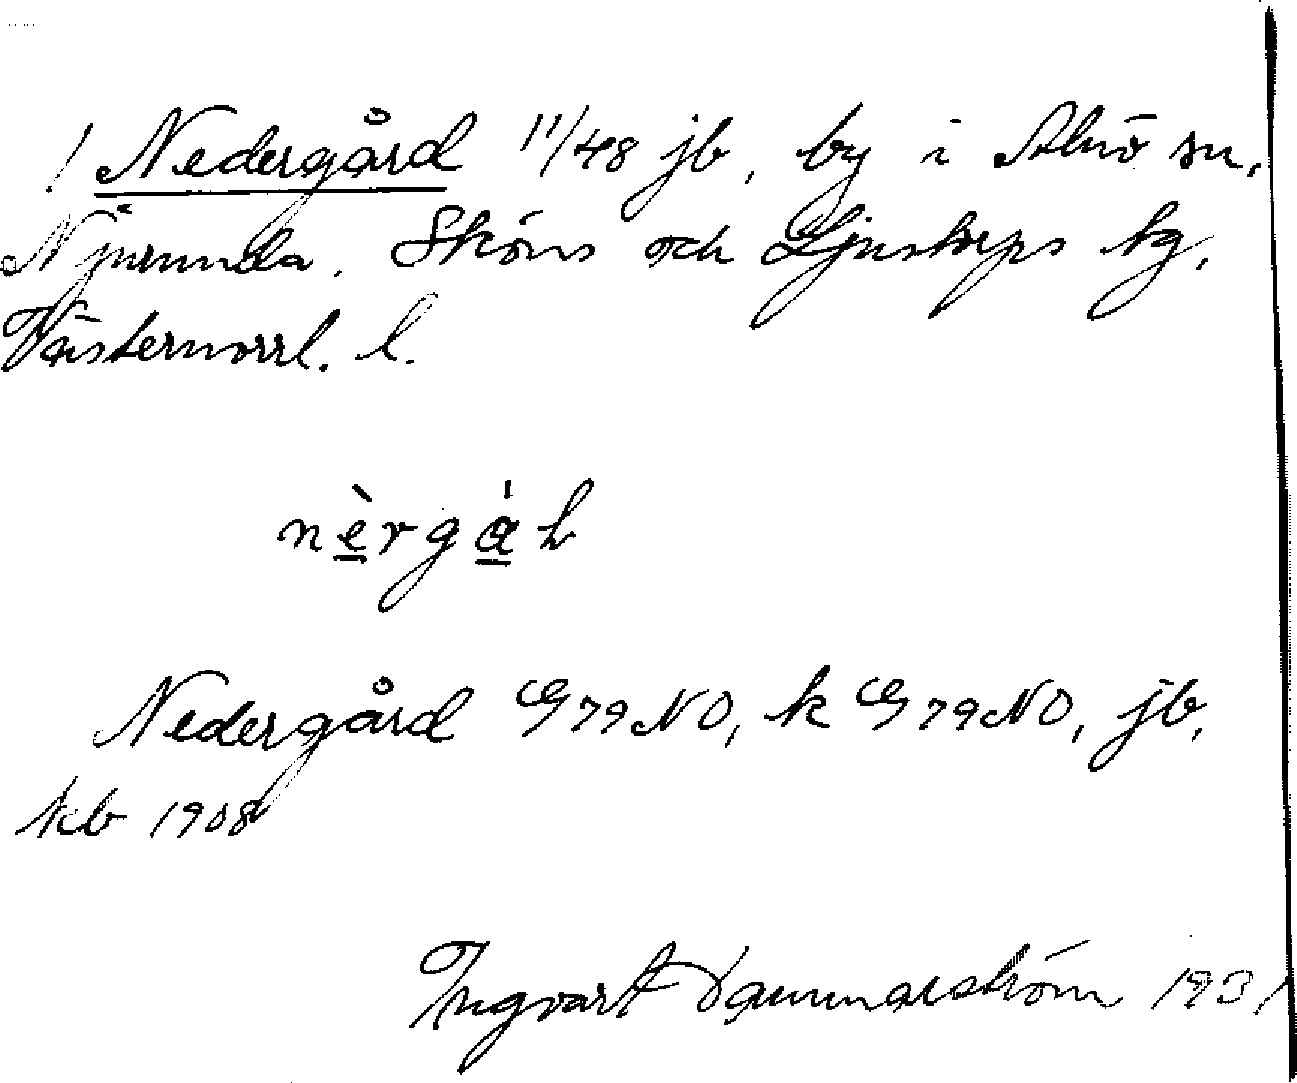 ! Nedergård 11/48 jb, by i Alnö sn,
Njurunda, Sköns och Ljustorps tg,
Västernorrl. l.
nèrgá̱ɫ
Nedergård G 79 NO, k G 79 NO, jb,
kb 1908
Ingvart 1931